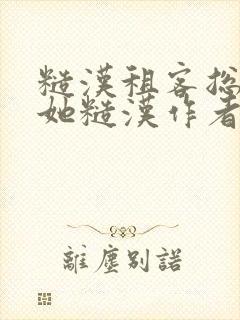 糙漢租客總
她糙漢作者
離塵別諾